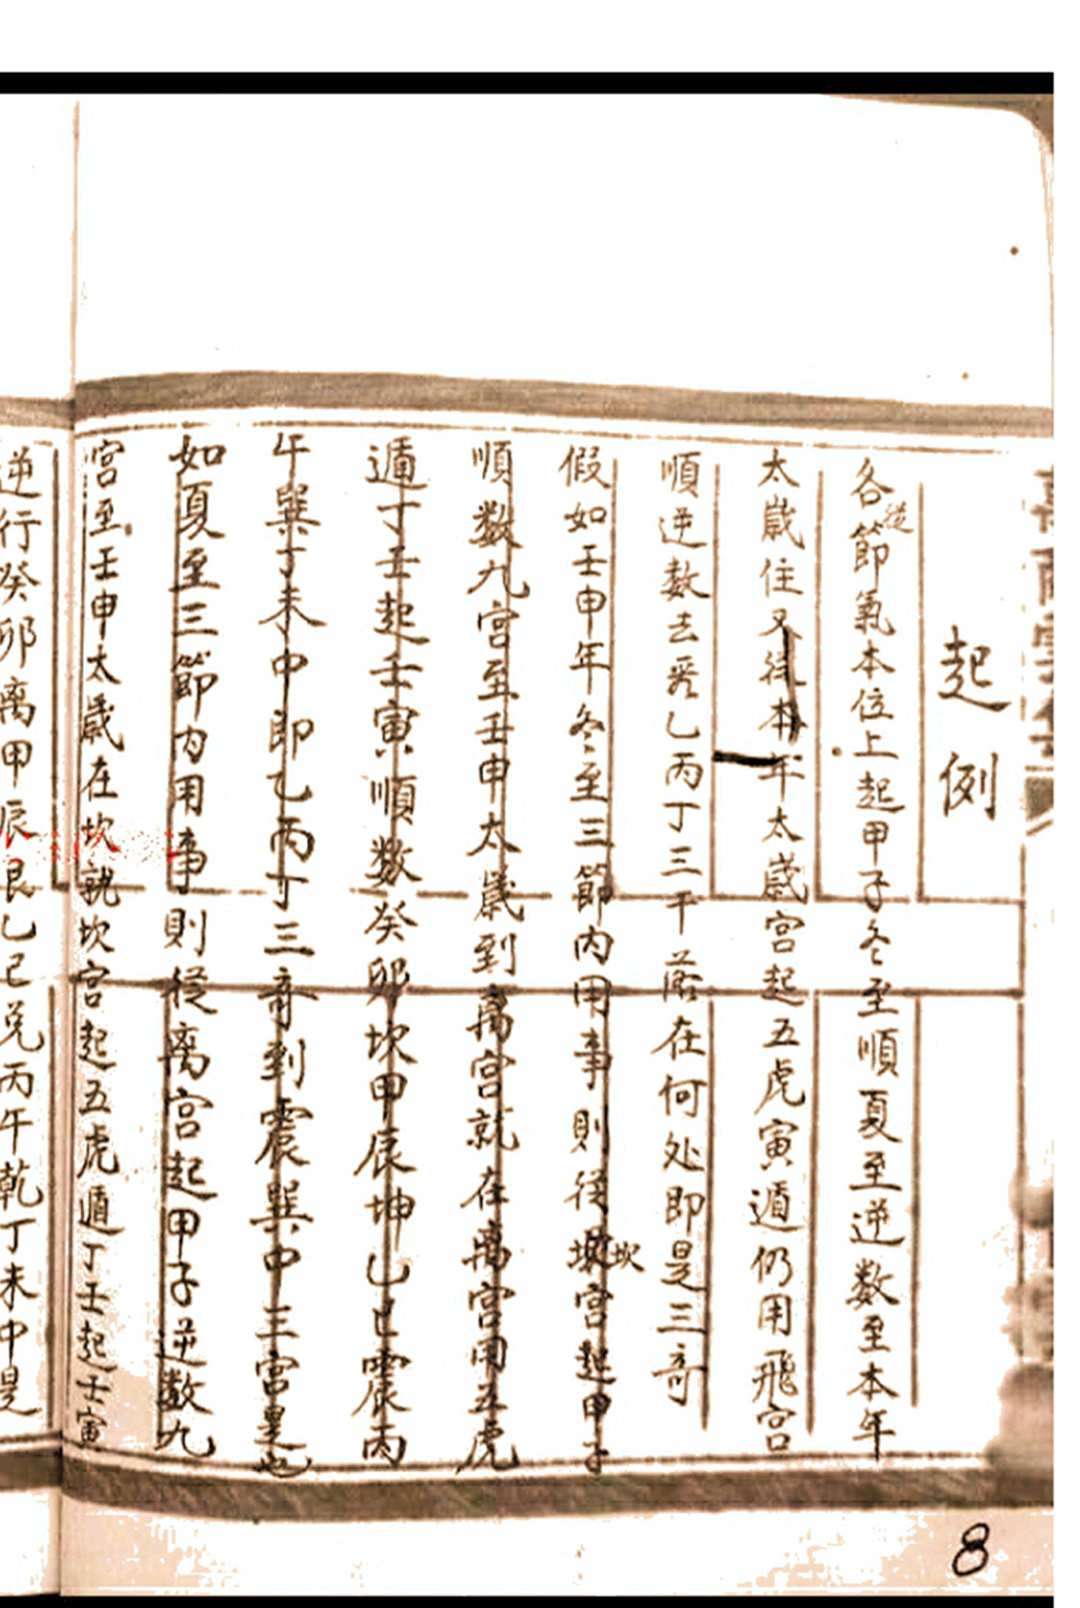 起例
各從節氣本位上起甲子冬至順夏至逆数至本年
太歲住又從本年太歲宮起五虎寅遁仍用飛宮
順逆数去看乙丙丁三干落在何处即是三奇
假如壬申年冬至三節内用事則從坎宮起甲子
順数九宮至壬申太歲到离宮就在离宮用五虎
遁丁壬起壬寅順数癸卯坎甲辰坤乙巳震丙
午巽丁未中即乙丙丁三奇到震巽中三宮是也
如夏至三節内用事則從离宮起甲子逆数九
宮至壬申太歲在坎就坎宮起五虎遁丁壬起壬寅
逆行癸卯离甲辰艮乙巳兑丙午乾丁未中是
8